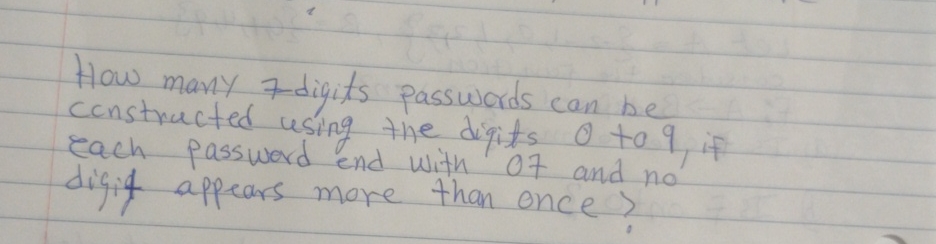 How many 7 digits passwords can be
constructed using the digits 0 to 9, if
each password end with 07 and no
digit appears more than once?